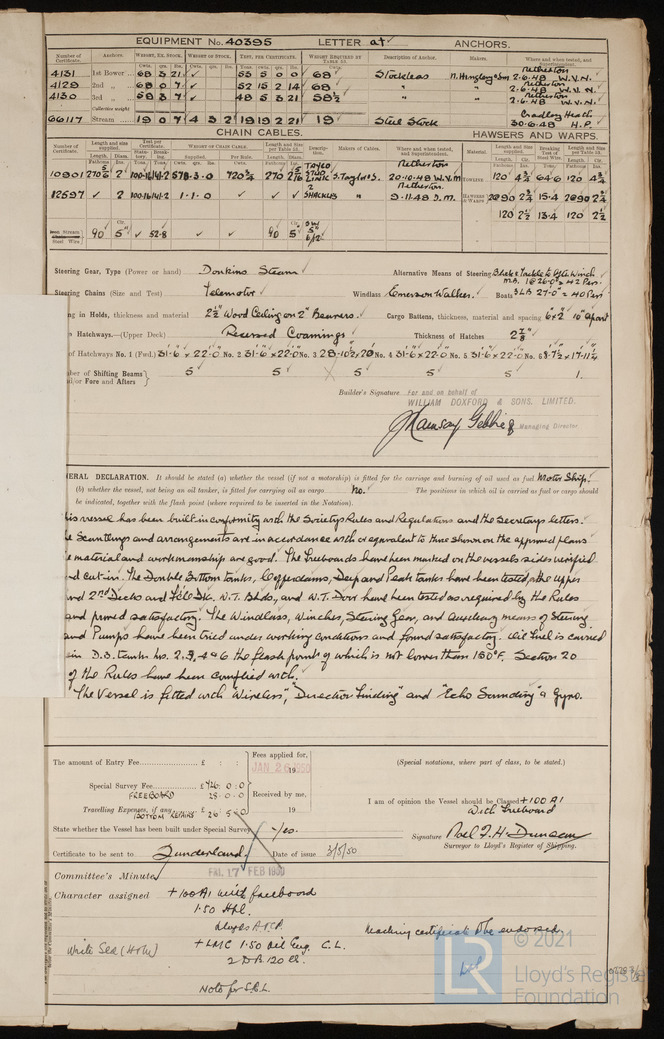 EQUIPMENT No. 40395 LETTER at ANCHORS.
Number of Certificate. Anchors. WEIGHT, EX. STOCK. WEIGHT OF STOCK. TEST, PER CERTIFICATE. WEIGHT REQUIRED BY TABLE 53. Description of Anchor. Makers. Where and when tested, and Superintendent.
Cwts. qrs. lbs. Cwts. qrs. lbs. Tons. cwts. qrs. lbs. Cwts.
4131 1st Bower 68 3 21 ✓ 53 5 0 0 68 Stockless N. Hingley & Son Netherton 2-6-48 W.V.N.
4129 2nd „ 68 0 7 ✓ 52 15 2 14 68 " " Netherton 2-6-48 W.V.N.
4130 3rd „ 7 ✓ 48 5 3 21 58½ " " Netherton 2-6-48 W.V.N.
Collective weight
66117 Stream 19 0 7 4 3 2 19 19 2 21 19 Steel Stock Cradley Heath 30-6-48 H.P.
CHAIN CABLES. HAWSERS AND WARPS.
Number of Certificate. Length and size supplied. Test per Certificate. WEIGHT OF CHAIN CABLE. Length and size per Table 53. Description. Makers of Cables. Where and when tested, and Superintendent. Material. Length and size supplied. Breaking Test of Steel Wire. Length and size per Table 53.
Length. Diam. Statutory. Breaking. Supplied. Per Rule. Length. Diam. Length. Cir. Length. Cir.
10901 270 2 100-16 141-2 578-3-0 720¾ 270 TAYCO STUD LINK S. Taylor & S. Netherton 20-10-48 W.V.N. TOWLINE 120 4¾ 64.6 120 4¾
12597 ✓ 2 100-16 141-2 1-1-0 ✓ 2 SHACKLES " Netherton 9-11-48 HAWSERS & WARPS 2@90 2¾ 15.4 2@90 2¾
120 2½ 13.4 120 2½
Iron Stream Steel Wire 90 5" ✓ 52.8 ✓ ✓ 90 5"
Steering Gear, Type (Power or hand) Donkins Steam Alternative Means of Steering Blocks & Tackle to After Winch
Steering Chains (Size and Test) Telemotor Windlass Emerson Walker. Boats
ing in Holds, thickness and material 2½" Wood Ceiling on 2" Bearers. Cargo Battens, thickness, material and spacing 6"x2" 10" apart
n Hatchways.—(Upper Deck) Coamings Thickness of Hatches 2⅞"
of Hatchways No. 1 (Fwd.) 31'-6" x 22'-0" No. 2 31'-6" x 22'-0" No. 3 28'-10½" x 20' No. 4 31'-6" x 22'-0" No. 5 31'-6" x 22'-0" No. 6 8'-7½" x 17'-11¼"
ber of Shifting Beams and/or Fore and Afters } 5 5 5 5 5 1.
Builder's Signature For and on behalf of
WILLIAM DOXFORD & SONS. LIMITED.
J Ramsay Gebbie Managing Director
ERAL DECLARATION. It should be stated (a) whether the vessel (if not a motorship) is fitted for the carriage and burning of oil used as fuel Motor Ship.
(b) whether the vessel, not being an oil tanker, is fitted for carrying oil as cargo No. The positions in which oil is carried as fuel or cargo should
be indicated, together with the flash point (where required to be inserted in the Notation).
his vessel has been built in conformity with the Society's Rules and Regulations and the Secretary's letters.
e Scantlings and arrangements are in accordance with or equivalent to those shown on the approved plans
e material and workmanship are good. The Freeboards have been marked on the vessel's sides verified
nd cut in. The Double Bottom tanks, Cofferdams, Deep and Peak tanks have been tested, the Upper
nd 2nd Decks and F'cle Dk. W.T. Bhds., and W.T. Door have been tested as required by the Rules
and proved satisfactory. The Windlass, Winches, Steering Gear, and auxiliary means of Steering
and Pumps have been tried under working conditions and found satisfactory. Oil Fuel is carried
in D.B. tanks Nos. 2.3, 4 & 6 the flash point of which is not lower than 150°F. Section 20
of the Rules have been complied with.
The Vessel is fitted with "Wireless", "Direction Finding" and "Echo Sounding" & Gyro.
The amount of Entry Fee £ : : Fees applied for, JAN 26 1950 19 (Special notations, where part of class, to be stated.)
Special Survey Fee £ 0 : 0 Received by me,
FREEBOARD 28 . 0 . 0
Travelling Expenses, if any £ 26 : 5 : 0 19
BOTTOM REPAIRS
I am of opinion the Vessel should be Classed +100 A1
With Freeboard
State whether the Vessel has been built under Special Survey Yes.
Signature Noel F. H. Duncan
Surveyor to Lloyd's Register of Shipping.
Certificate to be sent to Sunderland Date of issue 3/5/50
Committee's Minute FRI. 17 FEB 1950
Character assigned +100A1 with freeboard
1.50 Hpl.
Lloyds A.&C.P.
+LMC 1.50 Oil Eng. C.L.
2 DB 120 lb.
Note for S.C.L.
Write Sld (Hole)
Machinery certificate to be endorsed
LR
© 2021
Lloyd's Register
Foundation